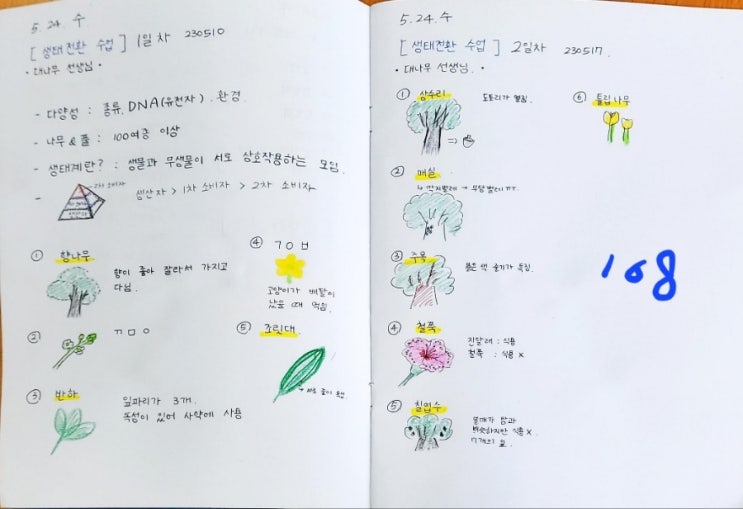 5. 24. 수
[ 생태전환 수업 ] 1일차 230510
· 대나무 선생님 ·
- 다양성 : 종류, DNA(유전자), 환경.
- 나무 & 풀 : 100여종 이상
- 생태계란? : 생물과 무생물이 서로 상호작용하는 모임.
- 생산자 > 1차 소비자 > 2차 소비자
① 향나무
향이 좋아 잘라서 가지고
다님.
② ㄲㅁㅇ
③ 반하
잎파리가 3개.
독성이 있어 사약에 사용
④ ㄱㅇㅂ
고양이가 배탈이
났을 때 먹음.
⑤ 조릿대
5. 24. 수
[ 생태전환 수업 ] 2일차 230517.
· 대나무 선생님 ·
① 상수리
도토리가 열림.
② 매실
③ 주목
붉은 색 줄기가 특징.
④ 철쭉
진달래 : 식용
철쭉 : 식용 X
⑤ 칠엽수
열매가 밤과
비슷하지만 식용 X.
7개의 잎.
⑥ 튤립나무
168